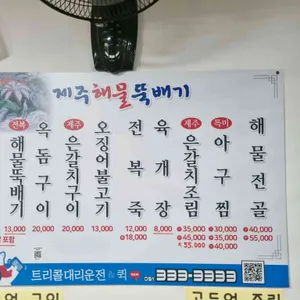 제주해물뚝배기
전복 해물뚝배기 13,000
옥돔구이 20,000
제주 은갈치구이 20,000
오징어불고기 13,000
전복죽 12,000 특18,000
육개장 8,000
제주 은갈치조림 소35,000 중45,000 대55,000
특미 아구찜 소30,000 중35,000 대40,000
해물전골 중40,000 대55,000
포함
트리콜대리운전&퀵 051) 333-3333